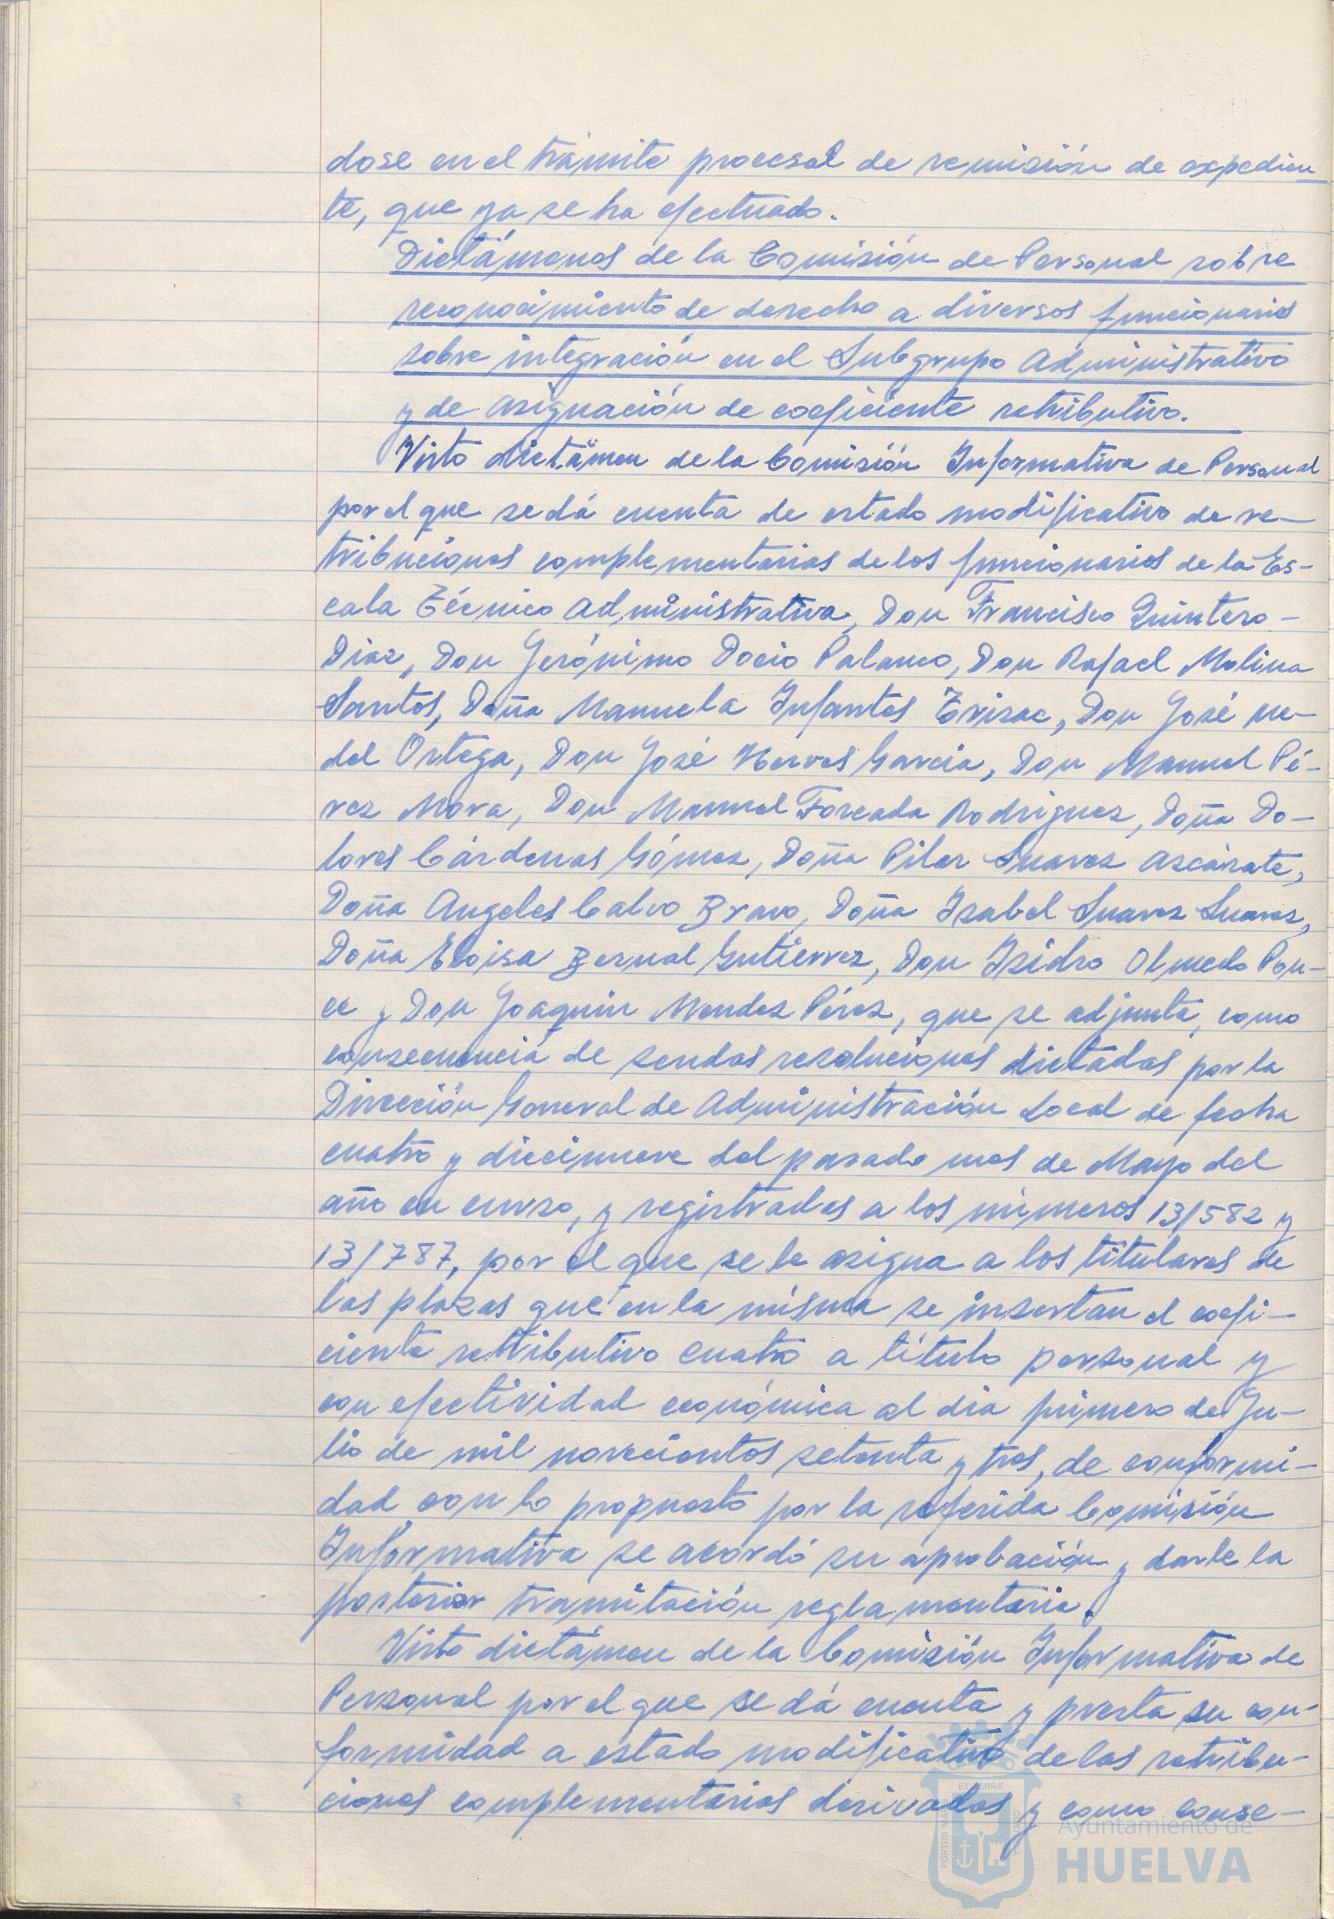 dose en el trámite procesal de remisión de expedien-
te, que ya se ha efectuado.
Dictámenes de la Comisión de Personal sobre
reconocimiento de derecho a diversos funcionarios
sobre integración en el Subgrupo Administrativo
y de asignación de coeficiente retributivo.
Visto dictámen de la Comisión Informativa de Personal
por el que se dá cuenta de estado modificativo de re-
tribuciones complementarias de los funcionarios de la Es-
cala Técnico Administrativa, Don Francisco Quintero-
Diaz, Don Jerónimo Docio Palanco, Don Rafael Molina
Santos, Doña Manuela Infantes Trisac, Don José Me-
del Ortega, Don José Nerves García, Don Manuel Pé-
rez Mora, Don Manuel Forcada Rodriguez, Doña Do-
lores Cárdenas Gómez, Doña Pilar Suarez Azcárate,
Doña Angeles Calvo Bravo, Doña Isabel Suarez Suarez,
Doña Eloisa Bernal Gutierrez, Don Isidro Olmedo Pon-
ce y Don Joaquín Mendez Pérez, que se adjunta, como
consecuencia de sendas resoluciones dictadas por la
Dirección General de Administración Local de fecha
cuatro y diecinueve del pasado mes de Mayo del
año en curso, y registrados a los números 13/582 y
13/787, por el que se le asigna a los titulares de
las plazas que en la misma se insertan el coefi-
ciente retributivo cuatro a título personal y
con efectividad económica al dia primero de Ju-
lio de mil novecientos setenta y tres, de conformi-
dad con lo propuesto por la referida Comisión
Informativa se acordó su aprobación y darle la
posterior tramitación reglamentaria.
Visto dictámen de la Comisión Informativa de
Personal por el que se dá cuenta y presta su con-
formidad a estado modificativo de las retribu-
ciones complementarias derivadas y como conse-
Ayuntamiento de
HUELVA